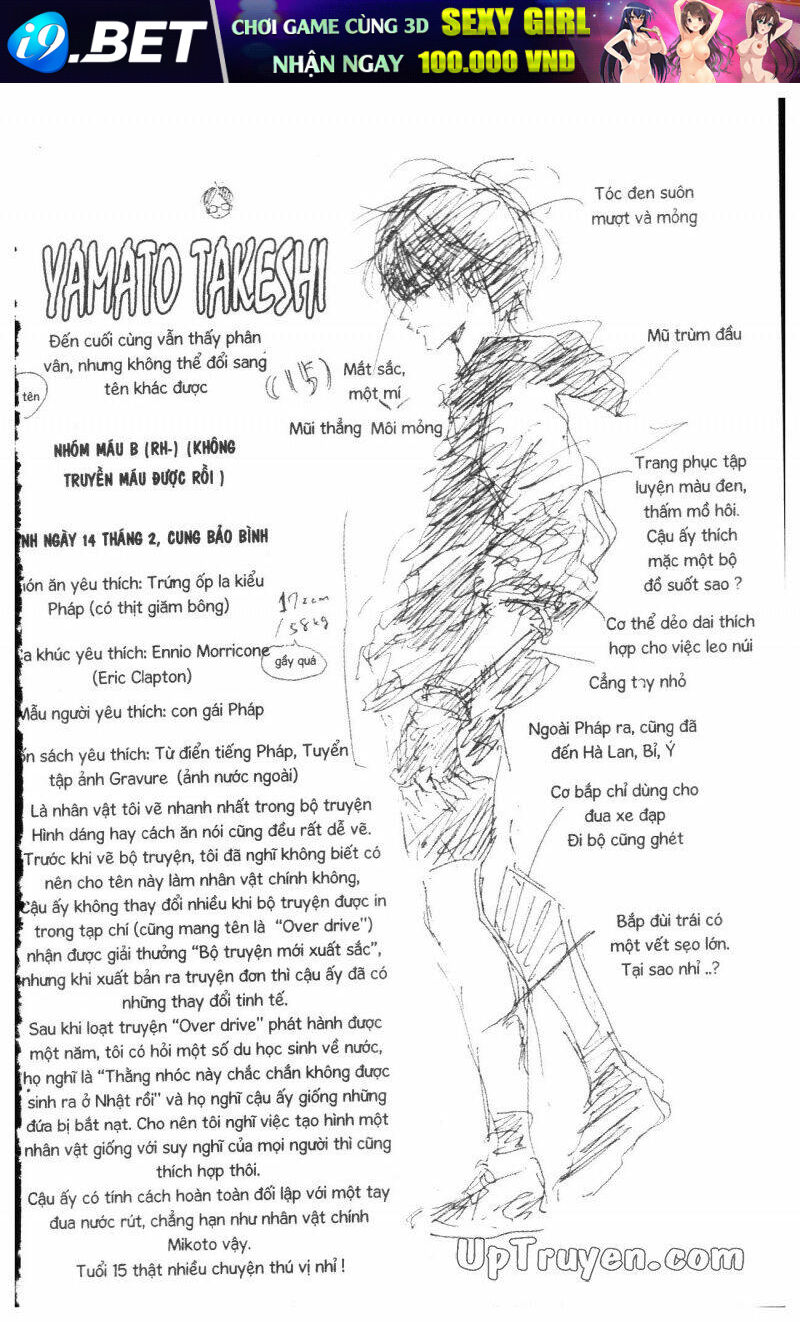 i9.BET
CHƠI GAME CÙNG 3D SEXY GIRL
NHẬN NGAY 100.000 VND
YAMATO TAKESHI
Đến cuối cùng vẫn thấy phân
vân, nhưng không thể đổi sang
tên khác được
tên
(15)
NHÓM MÁU B (RH-) (KHÔNG
TRUYỀN MÁU ĐƯỢC RỒI )
NH NGÀY 14 THÁNG 2, CUNG BẢO BÌNH
ón ăn yêu thích: Trứng ốp la kiểu
Pháp (có thịt giăm bông)
172cm
/58kg
gầy quá
a khúc yêu thích: Ennio Morricone
(Eric Clapton)
Mẫu người yêu thích: con gái Pháp
ốn sách yêu thích: Từ điển tiếng Pháp, Tuyển
tập ảnh Gravure (ảnh nước ngoài)
Là nhân vật tôi vẽ nhanh nhất trong bộ truyện
Hình dáng hay cách ăn nói cũng đều rất dễ vẽ.
Trước khi vẽ bộ truyện, tôi đã nghĩ không biết có
nên cho tên này làm nhân vật chính không,
Cậu ấy không thay đổi nhiều khi bộ truyện được in
trong tạp chí (cũng mang tên là “Over drive”)
nhận được giải thưởng “Bộ truyện mới xuất sắc”,
nhưng khi xuất bản ra truyện đơn thì cậu ấy đã có
những thay đổi tinh tế.
Sau khi loạt truyện “Over drive” phát hành được
một năm, tôi có hỏi một số du học sinh về nước,
họ nghĩ là “Thằng nhóc này chắc chắn không được
sinh ra ở Nhật rồi” và họ nghĩ cậu ấy giống những
đứa bị bắt nạt. Cho nên tôi nghĩ việc tạo hình một
nhân vật giống với suy nghĩ của mọi người thì cũng
thích hợp thôi.
Cậu ấy có tính cách hoàn toàn đối lập với một tay
đua nước rút, chẳng hạn như nhân vật chính
Mikoto vậy.
Tuổi 15 thật nhiều chuyện thú vị nhỉ !
Tóc đen suôn
mượt và mỏng
Mũ trùm đầu
Mắt sắc,
một mí
Mũi thẳng Môi mỏng
Trang phục tập
luyện màu đen,
thấm mồ hôi.
Cậu ấy thích
mặc một bộ
đồ suốt sao ?
Cơ thể dẻo dai thích
hợp cho việc leo núi
Cẳng tay nhỏ
Ngoài Pháp ra, cũng đã
đến Hà Lan, Bỉ, Ý
Cơ bắp chỉ dùng cho
đua xe đạp
Đi bộ cũng ghét
Bắp đùi trái có
một vết sẹo lớn.
Tại sao nhỉ ..?
UpTruyen.com